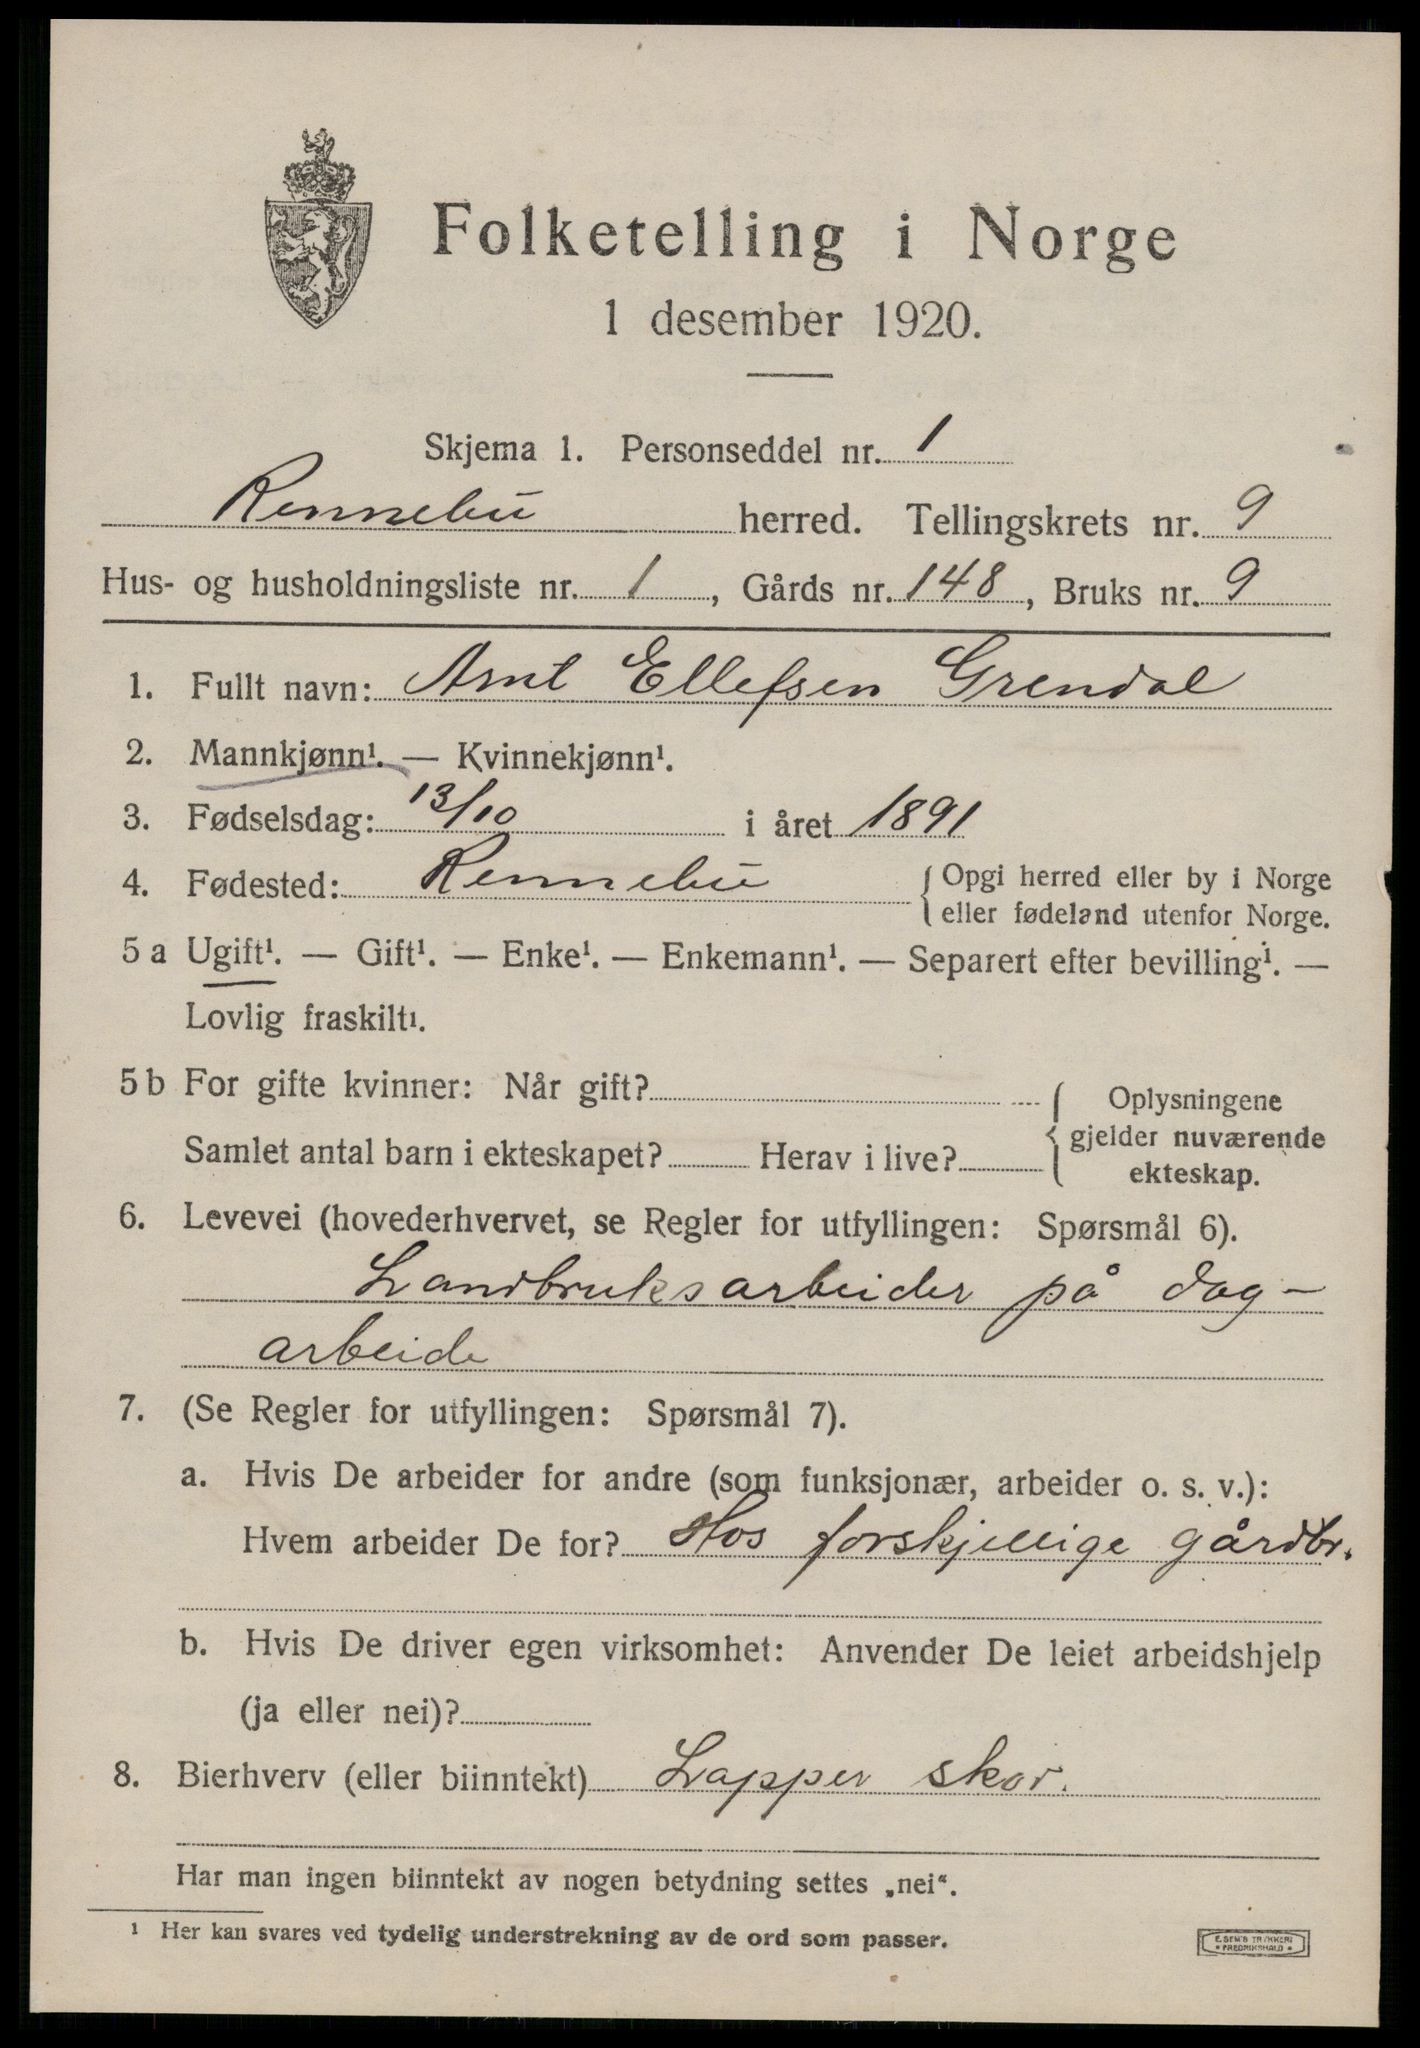 Folketelling i Norge
1 desember 1920.
Skjema 1. Personseddel nr. 1
Rennebu herred. Tellingskrets nr. 9
Hus- og husholdningsliste nr. 1, Gårds nr. 148, Bruks nr. 9
1. Fullt navn: Arnt Ellefsen Grendal
2. Mannkjønn¹. — Kvinnekjønn¹.
3. Fødselsdag: 13/10 i året 1891
4. Fødested: Rennebu { Opgi herred eller by i Norge
eller fødeland utenfor Norge.
5 a Ugift¹. — Gift¹. — Enke¹. — Enkemann¹. — Separert efter bevilling¹. —
Lovlig fraskilt¹.
5 b For gifte kvinner: Når gift? { Oplysningene
gjelder nuværende
ekteskap.
Samlet antal barn i ekteskapet? Herav i live?
6. Levevei (hovederhvervet, se Regler for utfyllingen: Spørsmål 6).
Landbruksarbeider på dag-
arbeide
7. (Se Regler for utfyllingen: Spørsmål 7).
a. Hvis De arbeider for andre (som funksjonær, arbeider o. s. v.):
Hvem arbeider De for? Hos forskjellige gårdbr.
b. Hvis De driver egen virksomhet: Anvender De leiet arbeidshjelp
(ja eller nei)?
8. Bierhverv (eller biinntekt) Lapper skor.
Har man ingen biinntekt av nogen betydning settes „nei“.
¹ Her kan svares ved tydelig understrekning av de ord som passer.
E. SEM'S TRYKKERI
* FREDRIKSHALD *